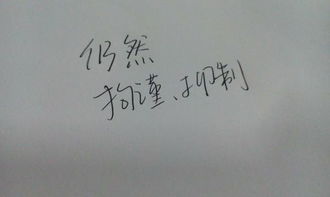 仍然
拘谨、抑制